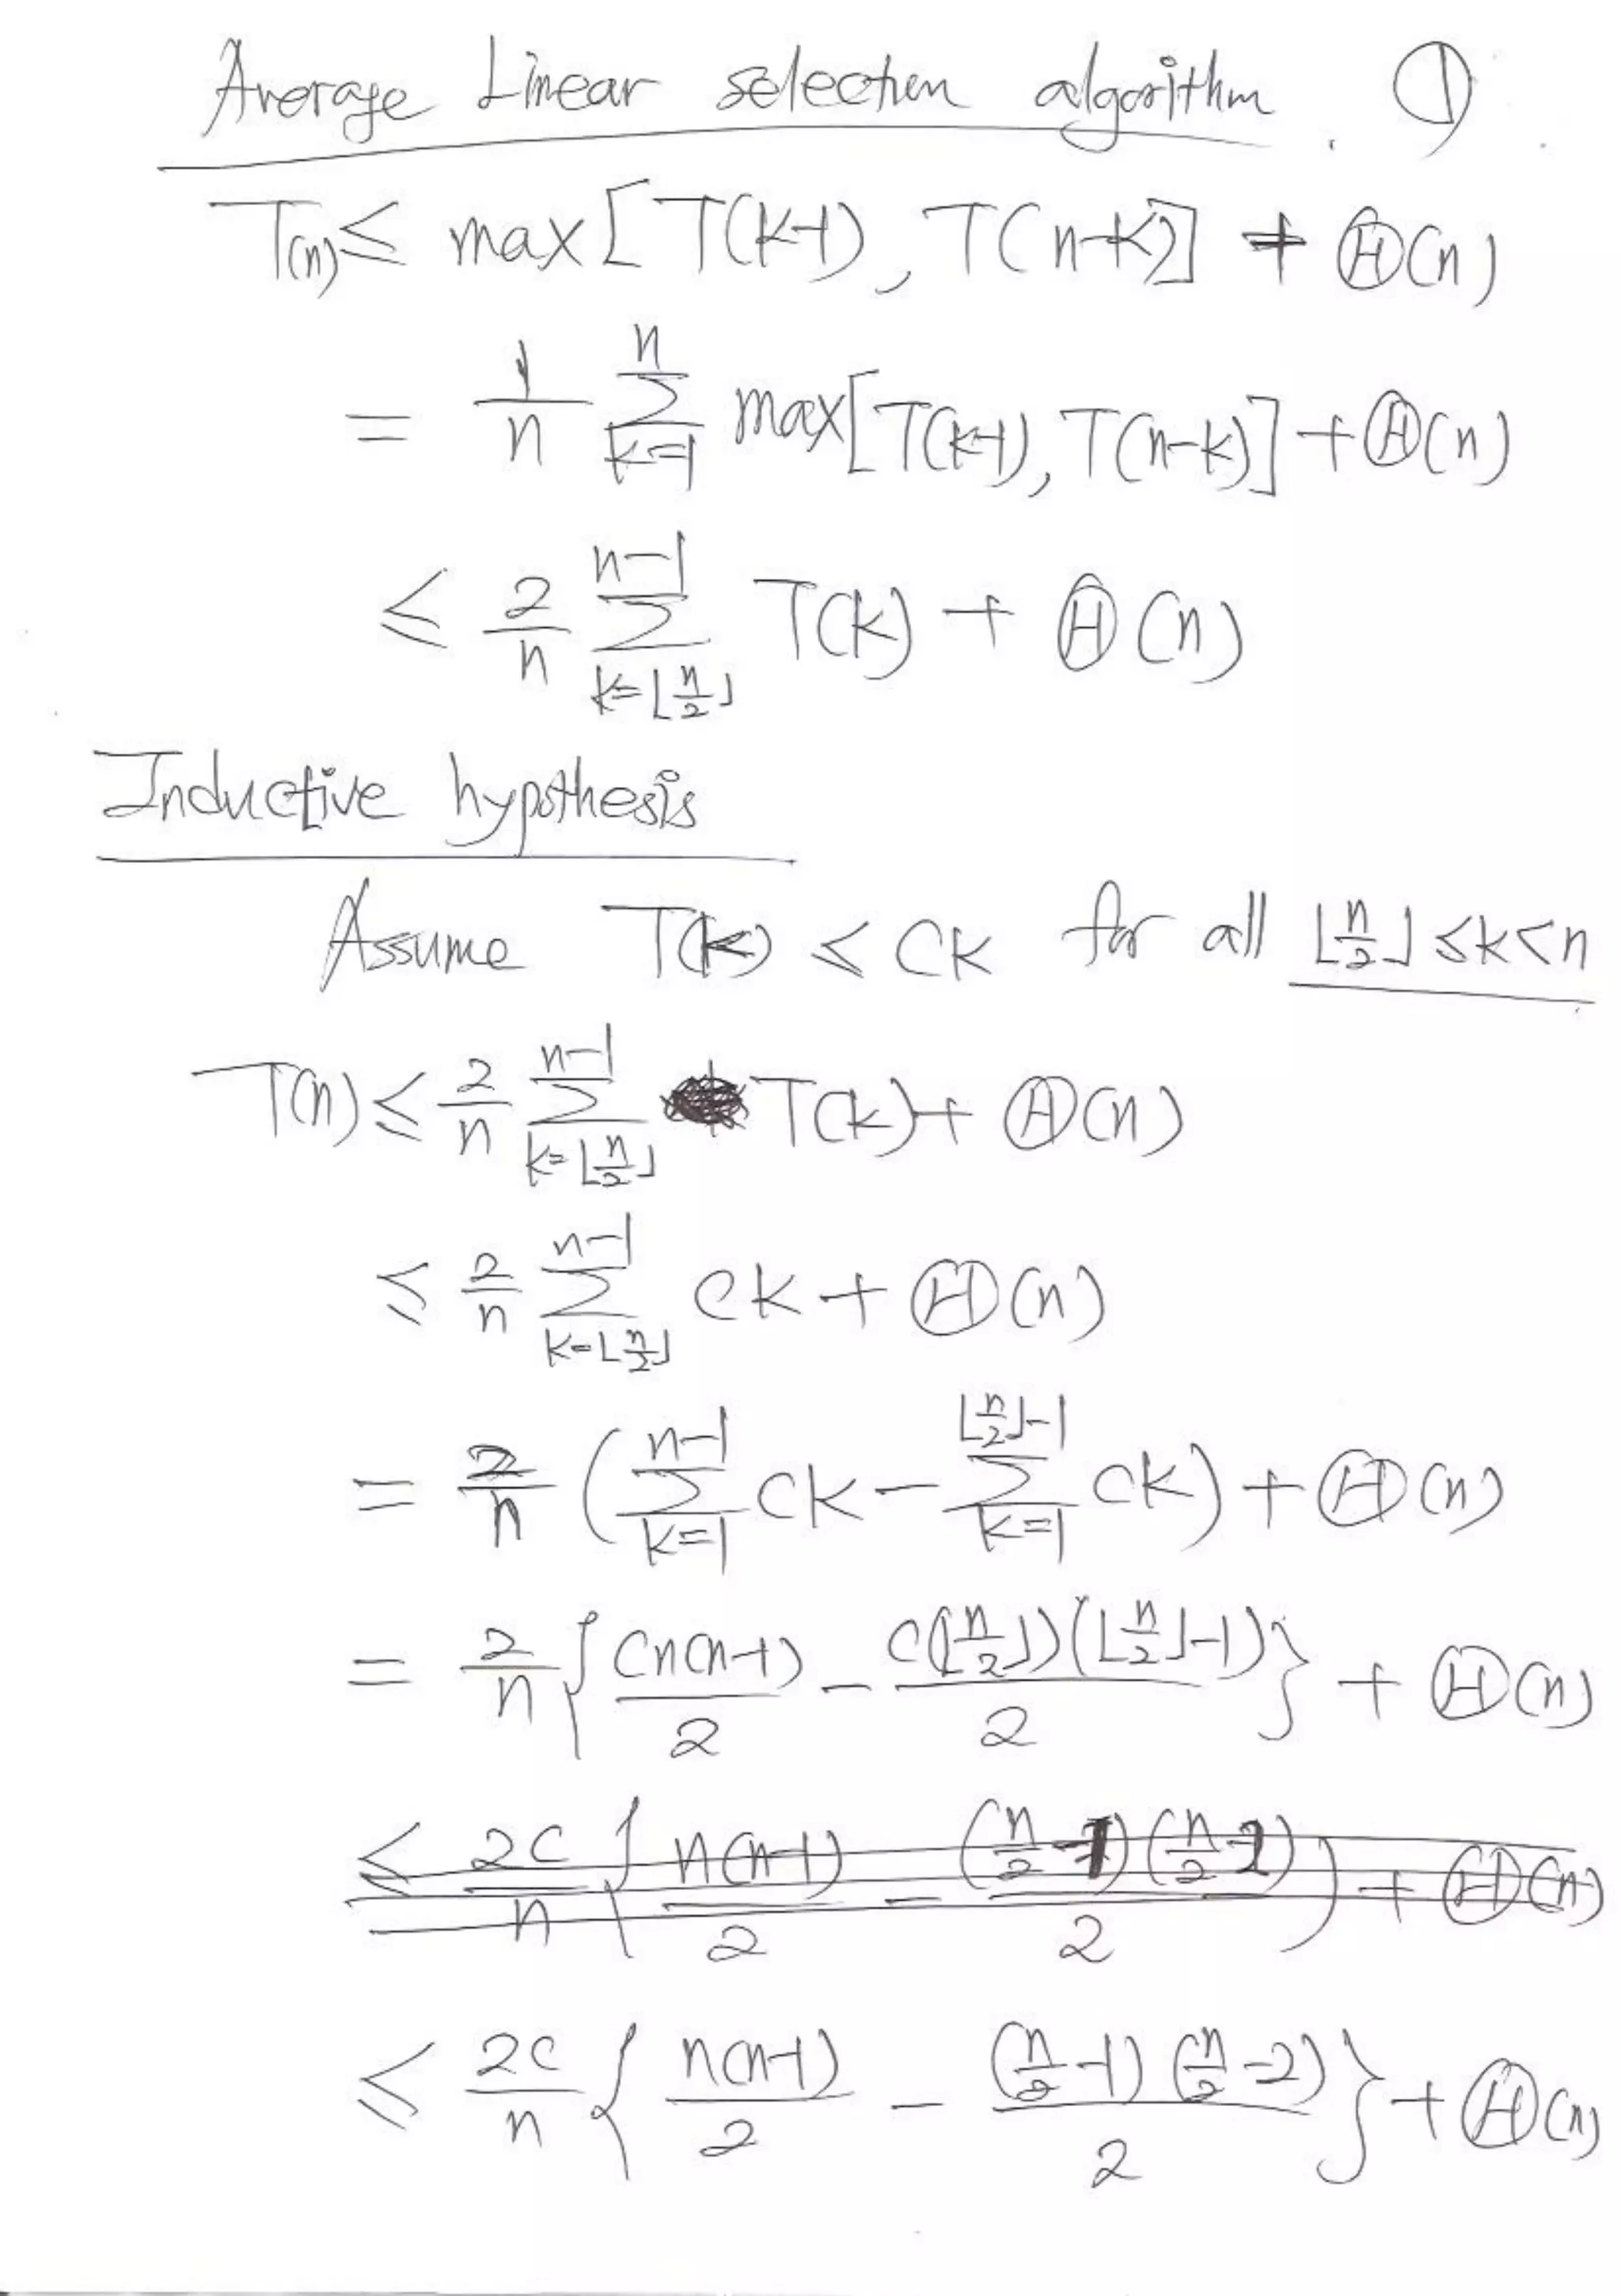 Average Linear selection algorithm. ①
T(n) ≤ max[T(k-1), T(n-k)] + Θ(n)
= 1/n ∑_{k=1}^{n} max[T(k-1), T(n-k)] + Θ(n)
≤ 2/n ∑_{k=⌊n/2⌋}^{n-1} T(k) + Θ(n)
Inductive hypothesis
Assume T(k) < Ck for all ⌊n/2⌋ ≤ k < n
T(n) ≤ 2/n ∑_{k=⌊n/2⌋}^{n-1} T(k) + Θ(n)
≤ 2/n ∑_{k=⌊n/2⌋}^{n-1} ck + Θ(n)
= 2/n (∑_{k=1}^{n-1} ck - ∑_{k=1}^{⌊n/2⌋-1} ck) + Θ(n)
= 2/n {cn(n-1)/2 - c(⌊n/2⌋)(⌊n/2⌋-1)/2} + Θ(n)
≤ 2c/n {n(n-1)/2 - (n/2-1)(n/2-2)/2} + Θ(n)
≤ 2c/n {n(n-1)/2 - (n/2-1)(n/2-2)/2} + Θ(n)